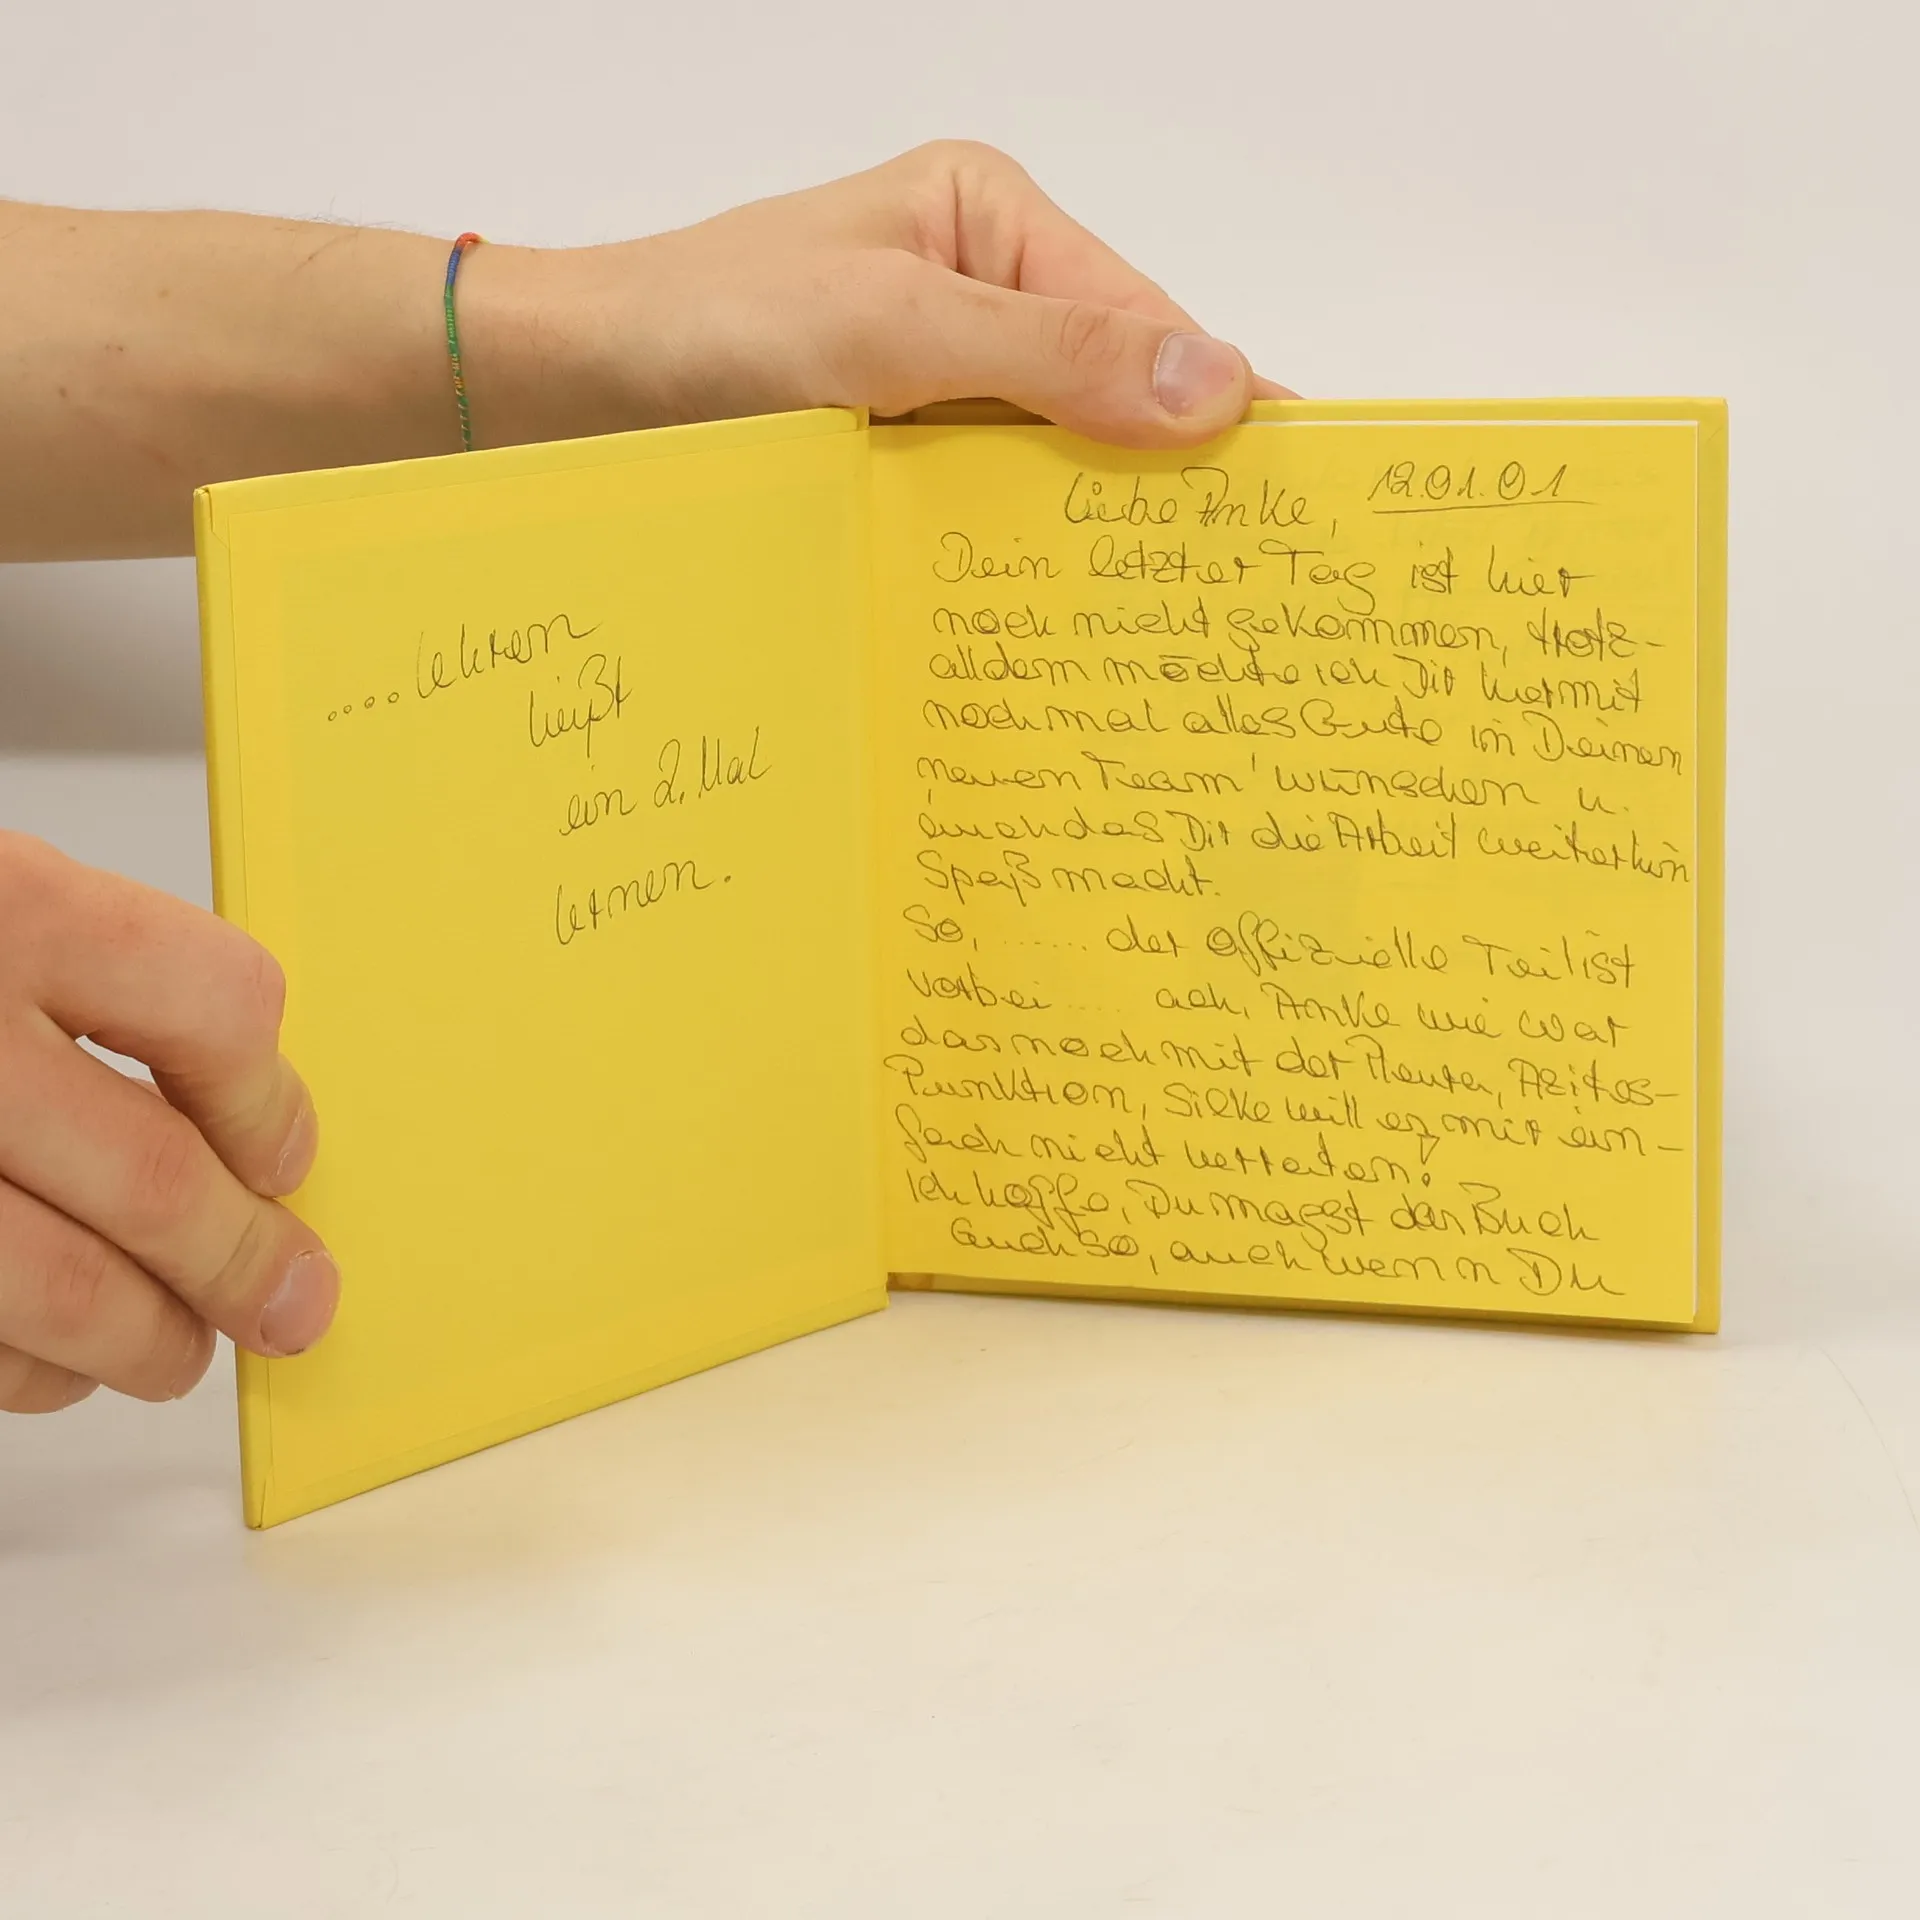 ....lehren
heißt
ein 2. Mal
lernen.
Liebe Anke, 12.01.01
Dein letzter Tag ist hier
noch nicht gekommen, trotz-
alldem möchte ich Dir hiermit
nochmal alles Gute im Deinen
neuen Team' wünschen u.
auch das Dir die Arbeit weiterhin
Spaß macht.
So, ...... der offizielle Teil ist
vorbei .... ach, Anke wie war
das noch mit der Pleura, Aszites-
Punktion, Silke will es mir ein-
fach nicht verraten!
Ich hoffe, Du magst das Buch
auch so, auch wenn Du